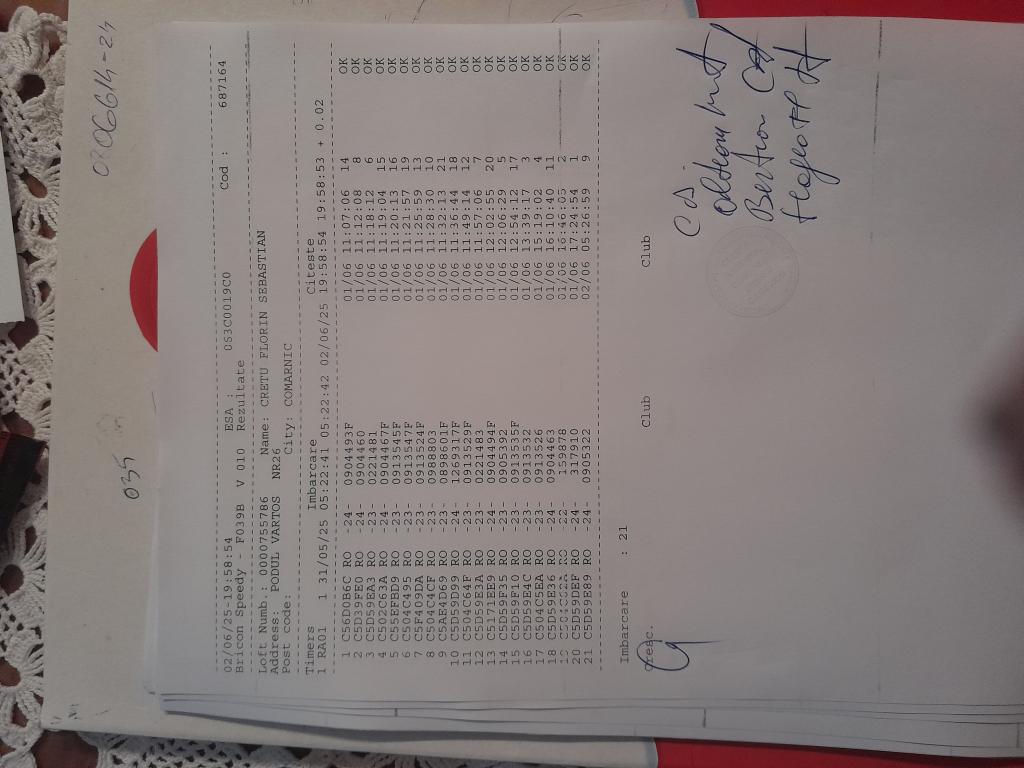 02/06/25-19:58:54 ESA : 053C0019C0 Cod : 687164
Bricon Speedy - F039B V 010 Rezultate
Loft Numb.: 0000755786 Name: CRETU FLORIN SEBASTIAN
Address: PODUL VARTOS NR26
Post code: City: COMARNIC
Timers Imbarcare Citeste
1 RA01 1 31/05/25 05:22:41 05:22:42 02/06/25 19:58:54 19:58:53 + 0.02
1 C56D0B6C RO -24- 0904493F 01/06 11:07:06 14 OK
2 C5D39FE0 RO -24- 0904460 01/06 11:12:08 8 OK
3 C5D59EA3 RO -23- 0221481 01/06 11:18:12 6 OK
4 C502C63A RO -24- 0904467F 01/06 11:19:04 15 OK
5 C55EFBD9 RO -23- 0913545F 01/06 11:20:13 16 OK
6 C504C495 RO -23- 0913547F 01/06 11:21:57 19 OK
7 C5F409DA RO -23- 0913524F 01/06 11:25:59 13 OK
8 C504C4CF RO -23- 0988803 01/06 11:28:30 10 OK
9 C5AE4D69 RO -23- 0898601F 01/06 11:32:13 21 OK
10 C5D59D99 RO -24- 1269317F 01/06 11:36:44 18 OK
11 C504C64F RO -23- 0913529F 01/06 11:49:14 12 OK
12 C5D59E3A RO -23- 0221483 01/06 11:57:06 7 OK
13 C5171EE9 RO -24- 0904494F 01/06 12:02:55 20 OK
14 C5D59F35 RO -24- 0905392 01/06 12:06:29 5 OK
15 C5D59F10 RO -23- 0913535F 01/06 12:54:12 17 OK
16 C5D59E4C RO -23- 0913532 01/06 13:39:17 3 OK
17 C504C5EA RO -23- 0913526 01/06 15:19:02 4 OK
18 C5D59E36 RO -24- 0904463 01/06 16:10:40 11 OK
19 RO -22- 159878 01/06 16:46:03 2 OK
20 C5D59DEF RO -24- 317910 01/06 17:24:54 1 OK
21 C5D59E89 RO -24- 0905322 02/06 05:26:59 9 OK
Imbarcare : 21
Cresc. Club Club
035